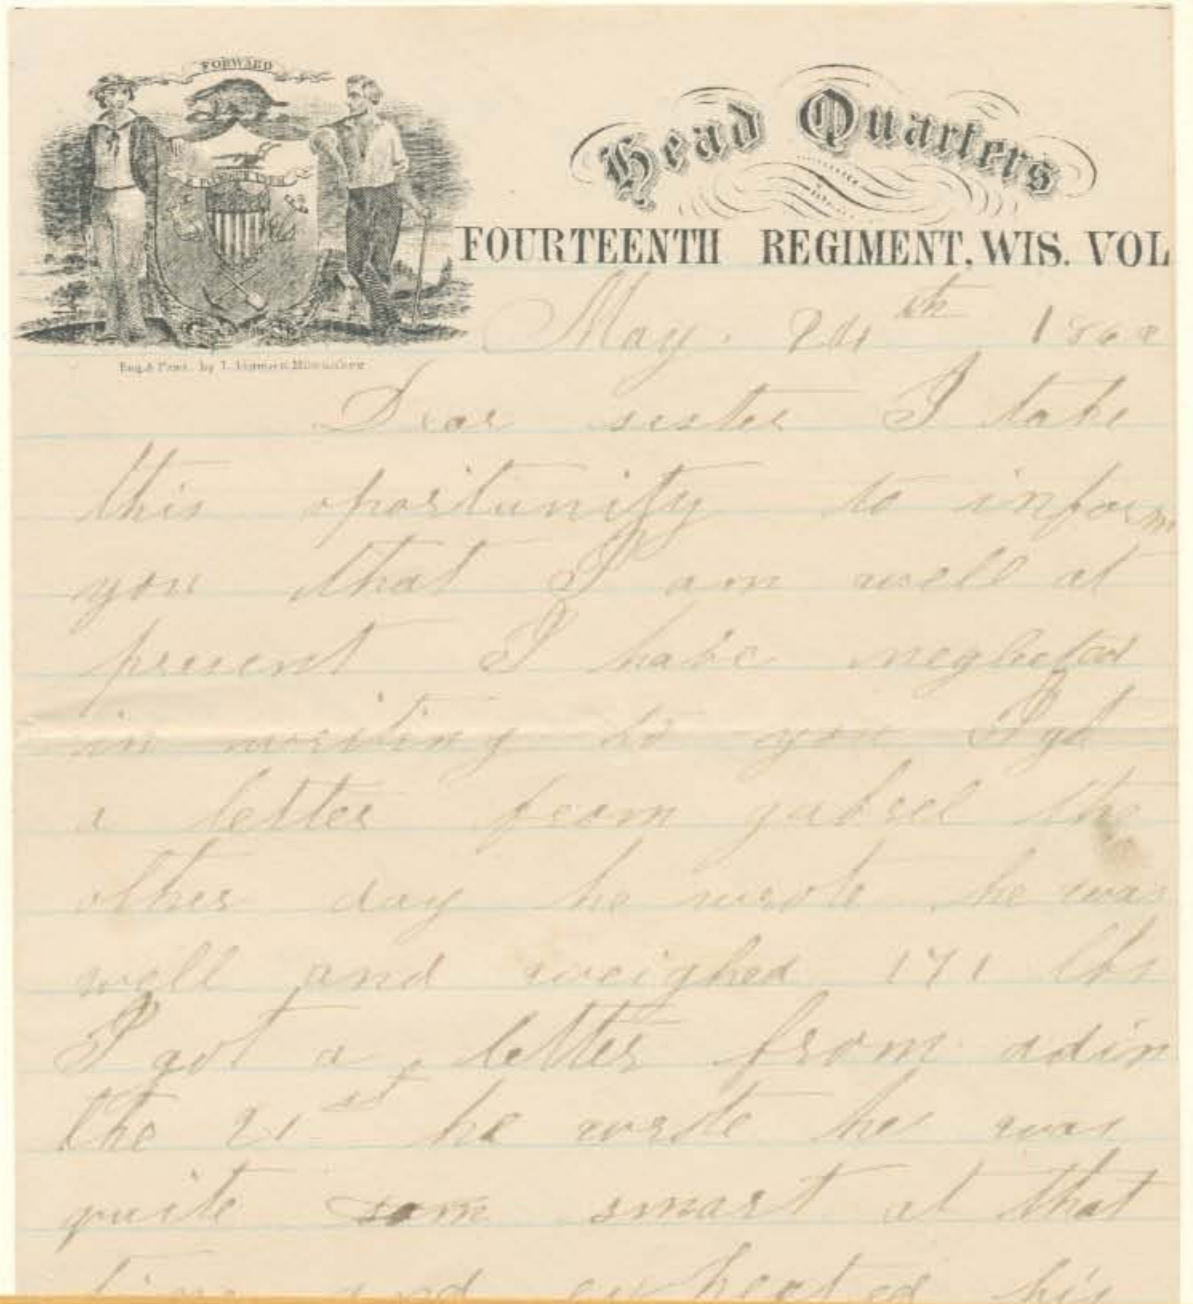 FORWARD
Head Quarters
FOURTEENTH REGIMENT, WIS. VOL
May. 24th 1862
Eng. & Print. by
Dear sister I take
this oportunity to inform
you that I am well at
present I have neglected
in writing to you I got
a letter from gabrel the
other day he wrote he was
well and weighed 171 lbs
I got a letter from adin
the 21st he wrote he was
quite som smart at that
time and his